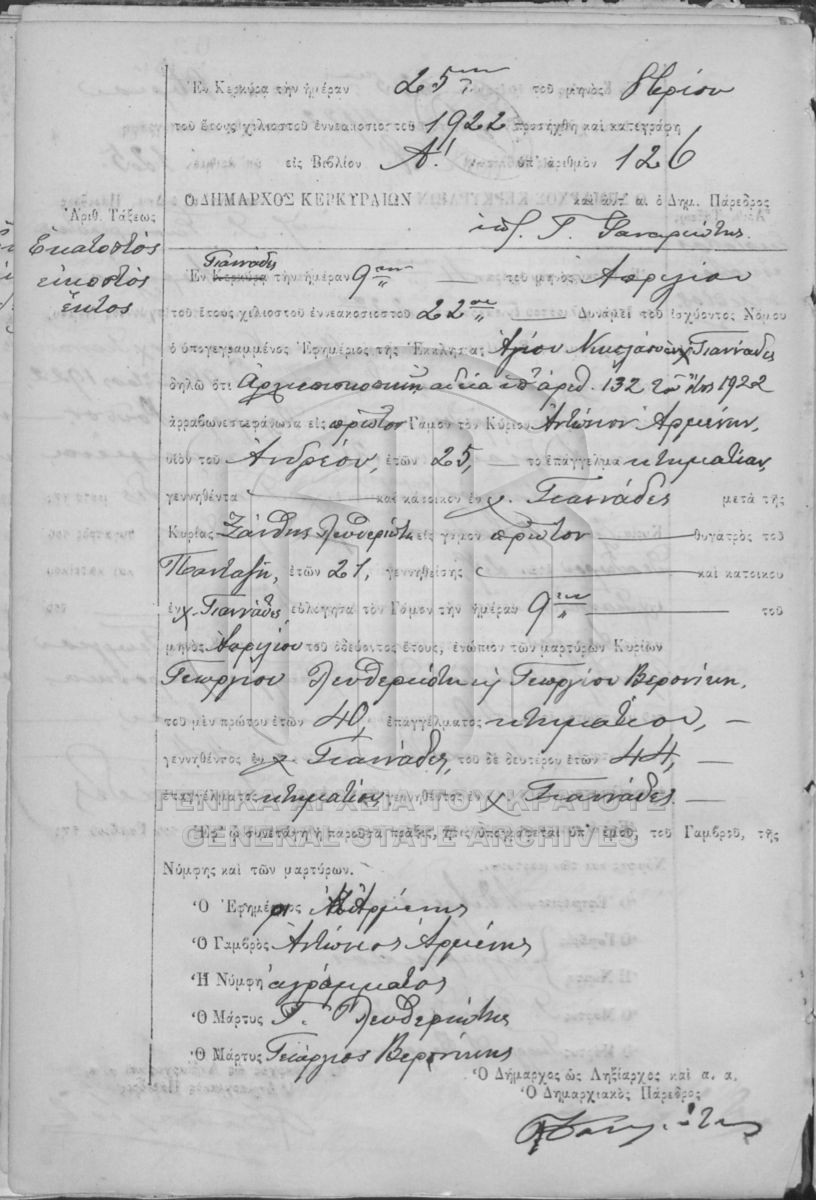 Ἐν Κερκύρᾳ τὴν ἡμέραν 25ην τοῦ μηνὸς 8βρίου
τοῦ ἔτους χιλιοστοῦ ἐννεακοσιοστοῦ 1922 προσήχθη καὶ κατεγράφη
εἰς Βιβλίον Α! ὑπ' ἀριθμὸν 126
Ο ΔΗΜΑΡΧΟΣ ΚΕΡΚΥΡΑΙΩΝ
καὶ ἀντ' αὐ. ὁ Δημ. Πάρεδρος
Γ. Φαναριώτης
Ἀριθ. Τάξεως
Ἑκατοστὸς
εἰκοστὸς
ἕκτος
Γιαννάδες
Ἐν Κερκύρᾳ τὴν ἡμέραν 9ην τοῦ μηνὸς Ἀπριλίου
τοῦ ἔτους χιλιοστοῦ ἐννεακοσιοστοῦ 22ου Δυνάμει τοῦ ἰσχύοντος Νόμου
ὁ ὑπογεγραμμένος Ἐφημέριος τῆς Ἐκκλησίας Ἁγίου Νικολάου χ. Γιαννάδες
δηλῶ ὅτι Ἀρχιεπισκοπικῇ ἀδείᾳ ὑπ' ἀριθ. 132 τοῦ ἔτους 1922
ἀρραβωνεστεφάνωσα εἰς πρῶτον Γάμον τὸν Κύριον Ἀντώνιον Ἀρμένην,
υἱὸν τοῦ Ἀνδρέου, ἐτῶν 25, τὸ ἐπάγγελμα κτηματίαν,
γεννηθέντα καὶ κάτοικον ἐν χ. Γιαννάδες μετὰ τῆς
Κυρίας Ξάνθης Λευθεριώτη εἰς γάμον πρῶτον θυγατρὸς τοῦ
Πανταζῆ, ἐτῶν 21, γεννηθείσης καὶ κατοίκου
ἐν χ. Γιαννάδες εὐλόγησα τὸν Γάμον τὴν ἡμέραν 9ην τοῦ
μηνὸς Ἀπριλίου τοῦ ὁδεύοντος ἔτους, ἐνώπιον τῶν μαρτύρων Κυρίων
Γεωργίου Λευθεριώτη κ Γεωργίου Βερονίκη,
τοῦ μὲν πρώτου ἐτῶν 40, ἐπαγγέλματος κτηματίου,
γεννηθέντος ἐν χ. Γιαννάδες, τοῦ δὲ δευτέρου ἐτῶν 44,
ἐπαγγέλματος κτηματίου γεννηθέντος ἐν χ. Γιαννάδες.
ΓΕΝΙΚΑ ΑΡΧΕΙΑ ΤΟΥ ΚΡΑΤΟΥΣ
Ἐφ' ᾧ συνετάγη ἡ παροῦσα πρᾶξις, ἥτις ὑπογράφεται ὑπ' ἐμοῦ, τοῦ Γαμβροῦ, τῆς
GENERAL STATE ARCHIVES
Νύμφης καὶ τῶν μαρτύρων.
Ὁ Ἐφημέριος Ἀρμένης
Ὁ Γαμβρὸς Ἀντώνιος Ἀρμένης
Ἡ Νύμφη ἀγράμματος
Ὁ Μάρτυς Γ. Λευθεριώτης
Ὁ Μάρτυς Γεώργιος Βερονίκης
Ὁ Δήμαρχος ὡς Ληξίαρχος καὶ α. α.
Ὁ Δημαρχιακὸς Πάρεδρος